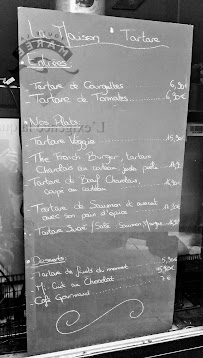 La Maison du Tartare
• Entrées:
- Tartare de Courgettes 6,90€
- Tartare de Tomates 6,90€
• Nos Plats:
- Tartare Veggie 15,90
- The French Burger, tartare
Charolais au couteau,
- Tartare de Boeuf Charolais,
coupé au couteau
- Tartare de Saumon et avocat
avec son pain d'épice
- Tartare Sucré/Salé Saumon, Mangue
• Desserts:
- Tartare de fruits du moment 5,90€
- Mi-Cuit au Chocolat
- Café Gourmand